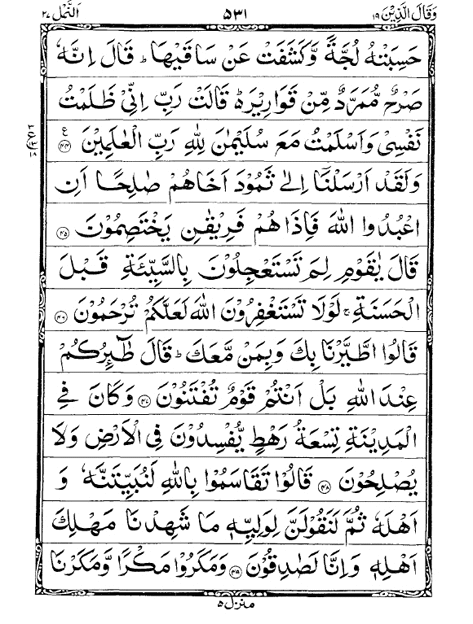 وَقَالَ الَّذِیْنَ ۱۹ ۵۳۱ اَلنَّمْل ۲۷
حَسِبَتْهُ لُجَّةً وَّكَشَفَتْ عَنْ سَاقَیْهَا ؕ قَالَ اِنَّهٗ
صَرْحٌ مُّمَرَّدٌ مِّنْ قَوَارِیْرَ ؕ۬ قَالَتْ رَبِّ اِنِّیْ ظَلَمْتُ
نَفْسِیْ وَاَسْلَمْتُ مَعَ سُلَیْمٰنَ لِلّٰهِ رَبِّ الْعٰلَمِیْنَ ۴۴
وَلَقَدْ اَرْسَلْنَاۤ اِلٰی ثَمُوْدَ اَخَاهُمْ صٰلِحًا اَنِ
اعْبُدُوا اللّٰهَ فَاِذَا هُمْ فَرِیْقٰنِ یَخْتَصِمُوْنَ ۴۵
قَالَ یٰقَوْمِ لِمَ تَسْتَعْجِلُوْنَ بِالسَّیِّئَةِ قَبْلَ
الْحَسَنَةِ ۚ لَوْلَا تَسْتَغْفِرُوْنَ اللّٰهَ لَعَلَّكُمْ تُرْحَمُوْنَ ۴۶
قَالُوا اطَّیَّرْنَا بِكَ وَبِمَنْ مَّعَكَ ؕ قَالَ طٰٓئِرُكُمْ
عِنْدَ اللّٰهِ بَلْ اَنْتُمْ قَوْمٌ تُفْتَنُوْنَ ۴۷ وَكَانَ فِی
الْمَدِیْنَةِ تِسْعَةُ رَهْطٍ یُّفْسِدُوْنَ فِی الْاَرْضِ وَلَا
یُصْلِحُوْنَ ۴۸ قَالُوْا تَقَاسَمُوْا بِاللّٰهِ لَنُبَیِّتَنَّهٗ وَ
اَهْلَهٗ ثُمَّ لَنَقُوْلَنَّ لِوَلِیِّهٖ مَا شَهِدْنَا مَهْلِكَ
اَهْلِهٖ وَاِنَّا لَصٰدِقُوْنَ ۴۹ وَمَكَرُوْا مَكْرًا وَّمَكَرْنَا
منزل ۵